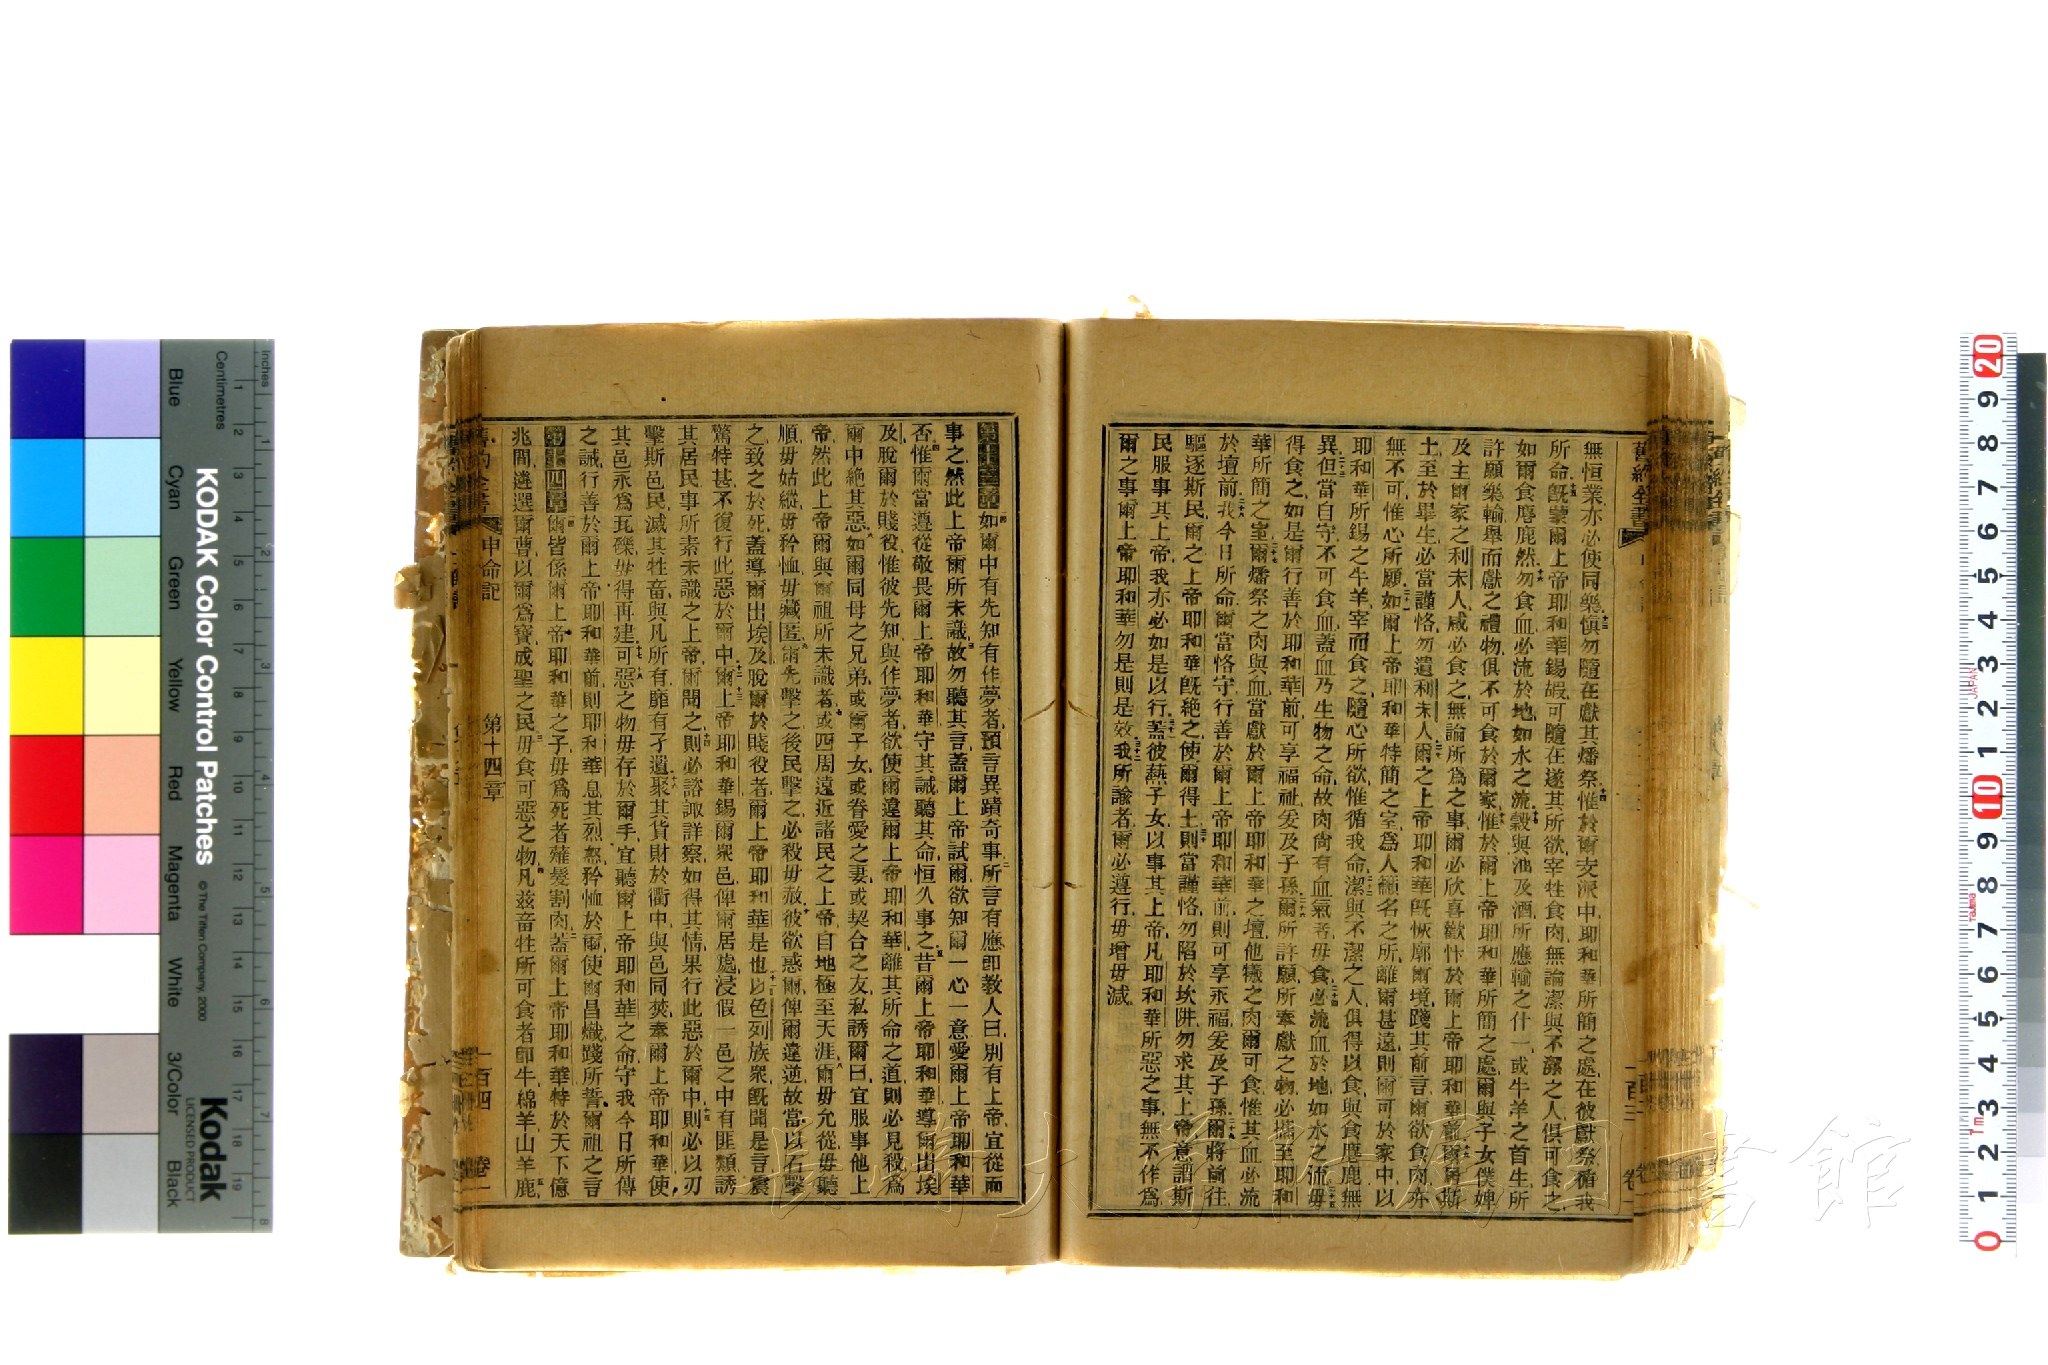 無恒業亦必使同樂愼勿隨在獻其燔祭惟於爾支派中耶和華所簡之處在彼獻祭循我
所命旣蒙爾上帝耶和華錫嘏可隨在遂其所欲宰牲食肉無論潔與不潔之人俱可食之
如爾食麕鹿然勿食血必流於地如水之流穀與油及酒所應輸之什一或牛羊之首生所
許願樂輸舉而獻之禮物俱不可食於爾家惟於爾上帝耶和華所簡之處爾與子女僕婢
及主爾家之利未人咸必食之無論所爲之事爾必欣喜歡忭於爾上帝耶和華前爾居斯
土至於畢生必當謹恪勿遺利未人爾之上帝耶和華旣恢廓爾境踐其前言爾欲食肉亦
無不可惟心所願如爾上帝耶和華特簡之室爲人籲名之所離爾甚遠則爾可於家中以
耶和華所錫之牛羊宰而食之隨心所欲惟循我命潔與不潔之人俱得以食與食麕鹿無
異但當自守不可食血蓋血乃生物之命故肉尙有血氣者毋食必流血於地如水之流毋
得食之如是爾行善於耶和華前可享福祉爰及子孫爾所許願所奉獻之物必攜至耶和
華所簡之室爾燔祭之肉與血當獻於爾上帝耶和華之壇他犧之肉爾可食惟其血必流
於壇前我今日所命爾當恪守行善於爾上帝耶和華前則可享永福爰及子孫爾將前往
驅逐斯民爾之上帝耶和華旣絕之使爾得土則當謹恪勿陷於坎阱勿求其上帝意謂斯
民服事其上帝我亦必如是以行蓋彼爇子女以事其上帝凡耶和華所惡之事無不作爲
爾之事爾上帝耶和華勿是則是效我所諭者爾必遵行毋增毋減
舊約全書
一百三
卷一
第十三章如爾中有先知有作夢者預言異蹟奇事所言有應卽敎人曰別有上帝宜從而
事之然此上帝爾所未識故勿聽其言蓋爾上帝試爾欲知爾一心一意愛爾上帝耶和華
否惟爾當遵從敬畏爾上帝耶和華守其誡聽其命恒久事之昔爾上帝耶和華導爾出埃
及脫爾於賤役惟彼先知與作夢者欲使爾違爾上帝耶和華離其所命之道則必見殺爲
爾中絕其惡如爾同母之兄弟或爾子女或眷愛之妻或契合之友私誘爾曰宜服事他上
帝然此上帝爾與爾祖所未識者或四周遠近諸民之上帝自地極至天涯爾毋允從毋聽
順毋姑縱毋矜恤毋藏匿爾先擊之後民擊之必殺毋赦彼欲惑爾俾爾違逆故當以石擊
之致之於死蓋導爾出埃及脫爾於賤役者爾上帝耶和華是也以色列族衆旣聞是言震
驚特甚不復行此惡於爾中爾上帝耶和華錫爾衆邑俾爾居處浸假一邑之中有匪類誘
其居民事所素未識之上帝爾聞之則必諮諏詳察如得其情果行此惡於爾中則必以刃
擊斯邑民滅其牲畜與凡所有靡有孑遺聚其貨財於衢中與邑同焚奉爾上帝耶和華使
其邑永爲瓦礫毋得再建可惡之物毋存於爾手宜聽爾上帝耶和華之命守我今日所傳
之誡行善於爾上帝耶和華前則耶和華息其烈怒矜恤於爾使爾昌熾踐所誓爾祖之言
第十四章爾皆係爾上帝耶和華之子毋爲死者薙髮割肉蓋爾上帝耶和華特於天下億
兆間遴選爾曹以爾爲寶成聖之民毋食可惡之物凡茲畜牲所可食者卽牛綿羊山羊鹿
舊約全書
申命記
第十四章
一百四
卷一
KODAK Color Control Patches
© The Tiffen Company, 2000
Kodak
LICENSED PRODUCT
Inches
Centimetres
Blue
Cyan
Green
Yellow
Red
Magenta
White
3/Color
Black
JAPAN
1m